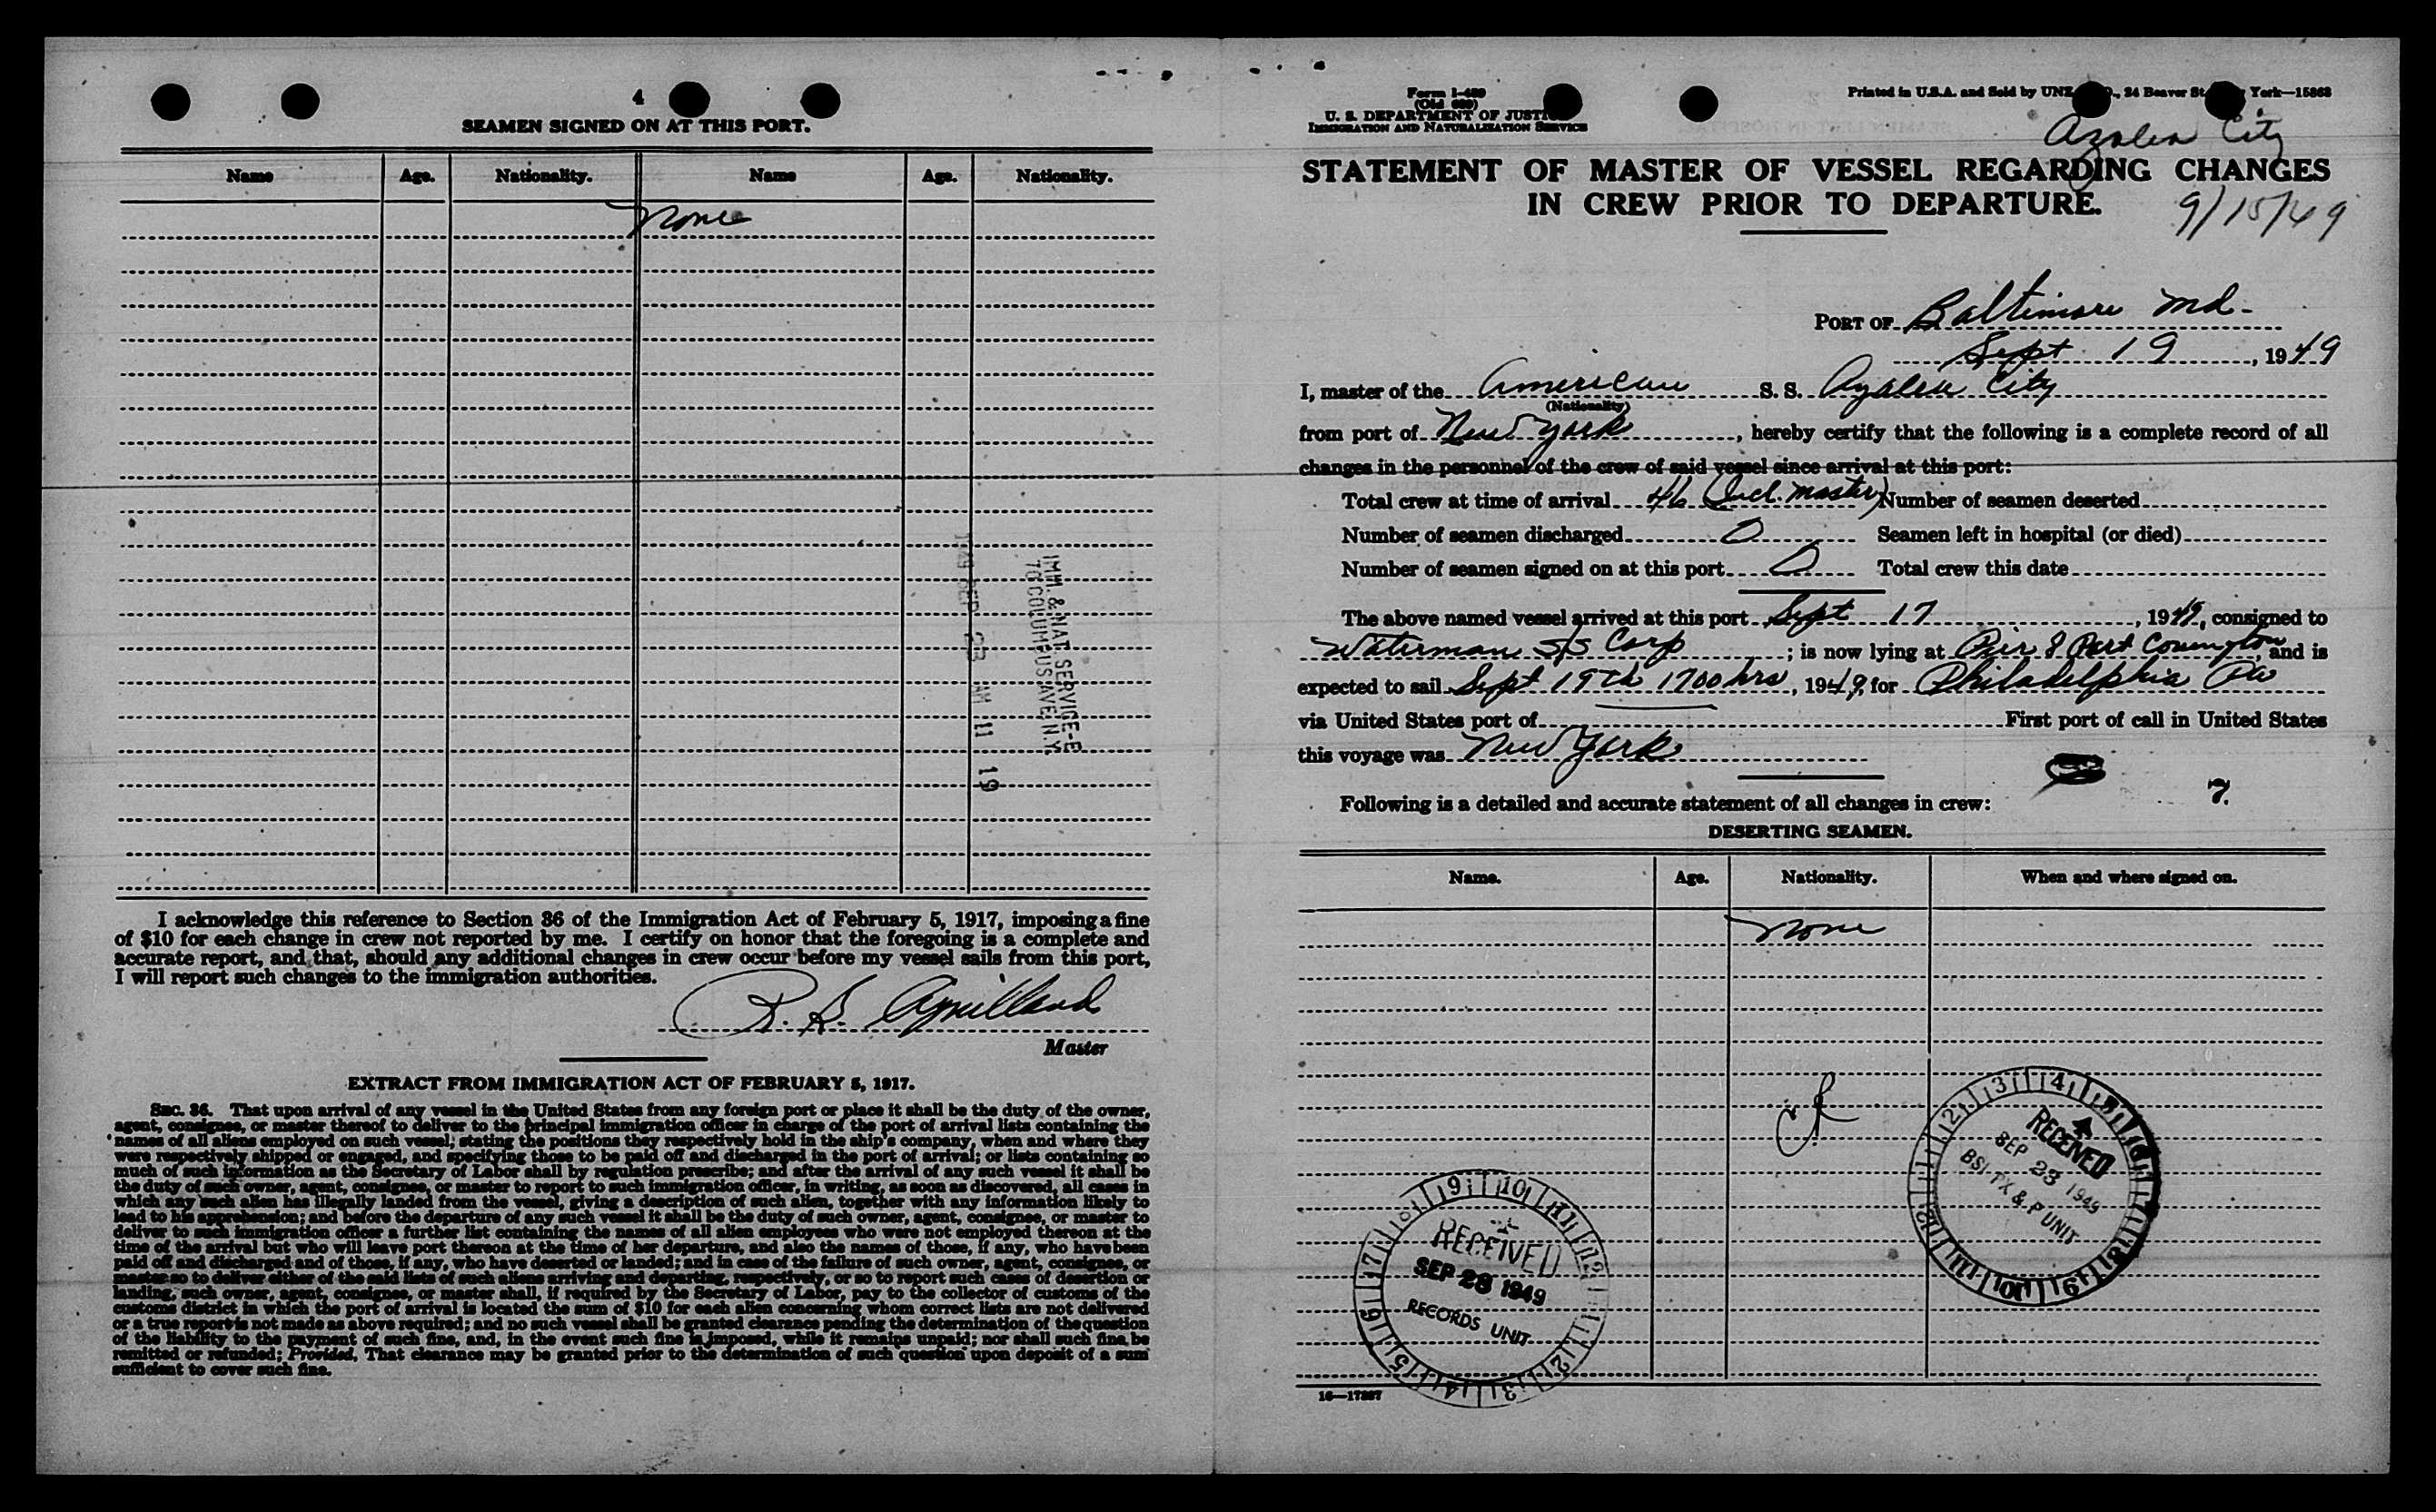 4
SEAMEN SIGNED ON AT THIS PORT.
Name Age. Nationality. Name Age. Nationality.
None
IMM. & NAT. SERVICE-E
70 COLUMBUS AVE. N.Y.
1949 SEP 23 AM 11 19
I acknowledge this reference to Section 36 of the Immigration Act of February 5, 1917, imposing a fine
of $10 for each change in crew not reported by me. I certify on honor that the foregoing is a complete and
accurate report, and that, should any additional changes in crew occur before my vessel sails from this port,
I will report such changes to the immigration authorities.
R. S.
Master
EXTRACT FROM IMMIGRATION ACT OF FEBRUARY 5, 1917.
SEC. 36. That upon arrival of any vessel in the United States from any foreign port or place it shall be the duty of the owner,
agent, consignee, or master thereof to deliver to the principal immigration officer in charge of the port of arrival lists containing the
names of all aliens employed on such vessel, stating the positions they respectively hold in the ship's company, when and where they
were respectively shipped or engaged, and specifying those to be paid off and discharged in the port of arrival; or lists containing so
much of such information as the Secretary of Labor shall by regulation prescribe; and after the arrival of any such vessel it shall be
the duty of such owner, agent, consignee, or master to report to such immigration officer, in writing, as soon as discovered, all cases in
which any such alien has illegally landed from the vessel, giving a description of such alien, together with any information likely to
lead to his apprehension; and before the departure of any such vessel it shall be the duty of such owner, agent, consignee, or master to
deliver to such immigration officer a further list containing the names of all alien employees who were not employed thereon at the
time of the arrival but who will leave port thereon at the time of her departure, and also the names of those, if any, who have been
paid off and discharged and of those, if any, who have deserted or landed; and in case of the failure of such owner, agent, consignee, or
master so to deliver either of the said lists of such aliens arriving and departing, respectively, or so to report such cases of desertion or
landing, such owner, agent, consignee, or master shall, if required by the Secretary of Labor, pay to the collector of customs of the
customs district in which the port of arrival is located the sum of $10 for each alien concerning whom correct lists are not delivered
or a true report is not made as above required; and no such vessel shall be granted clearance pending the determination of the question
of the liability to the payment of such fine, and, in the event such fine is imposed, while it remains unpaid; nor shall such fine be
remitted or refunded; Provided, That clearance may be granted prior to the determination of such question upon deposit of a sum
sufficient to cover such fine.
Form I-489
(Old 689)
U. S. DEPARTMENT OF JUSTICE
IMMIGRATION AND NATURALIZATION SERVICE
Printed in U.S.A. and Sold by UNZ , 24 Beaver St. York—15863
Azalea City
STATEMENT OF MASTER OF VESSEL REGARDING CHANGES
IN CREW PRIOR TO DEPARTURE.
9/15/49
PORT OF Baltimore Md-
Sept 19, 1949
I, master of the American S. S. Azalea City
(Nationality)
from port of New York, hereby certify that the following is a complete record of all
changes in the personnel of the crew of said vessel since arrival at this port:
Total crew at time of arrival 46 (Incl. master) Number of seamen deserted
Number of seamen discharged 0 Seamen left in hospital (or died)
Number of seamen signed on at this port 0 Total crew this date
The above named vessel arrived at this port Sept 17, 1949, consigned to
Waterman S/S Corp; is now lying at Pier 8 Port Covington, and is
expected to sail Sept 19th 1700 hrs, 1949, for Philadelphia Pa
via United States port of First port of call in United States
this voyage was New York
7.
Following is a detailed and accurate statement of all changes in crew:
DESERTING SEAMEN.
Name. Age. Nationality. When and where signed on.
None
1 2 3 4 5 6 7 8 9 10 11 12
RECEIVED
SEP 23 1949
BSI TX & P UNIT
1 2 3 4 5 6 7 8 9 10 11 12
RECEIVED
SEP 23 1949
RECORDS UNIT